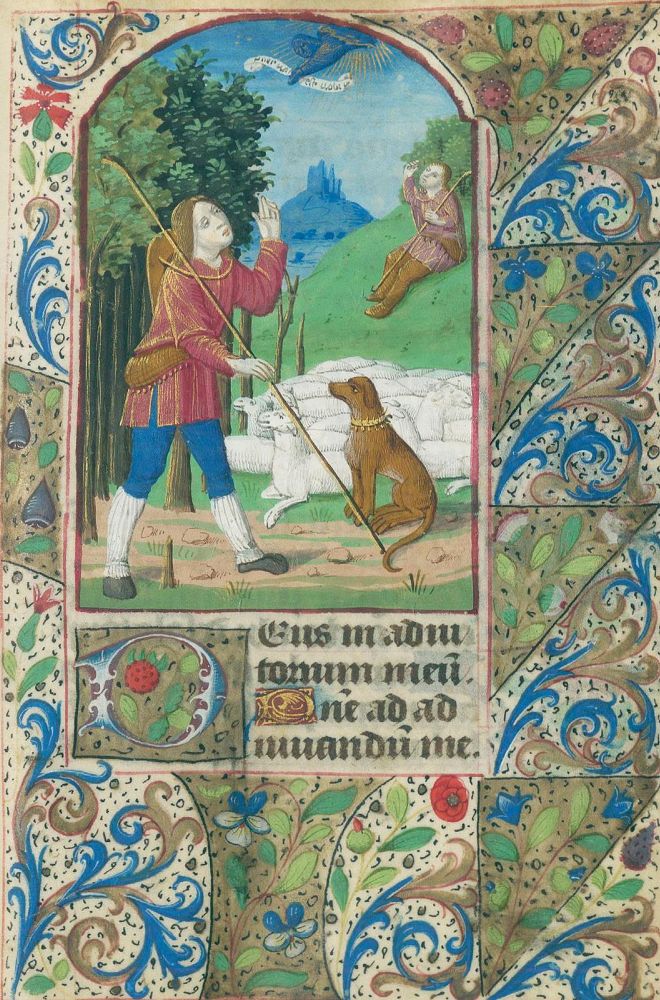 Deus in adiu
torium meū.
Dn̄e ad ad
iuuandū me.